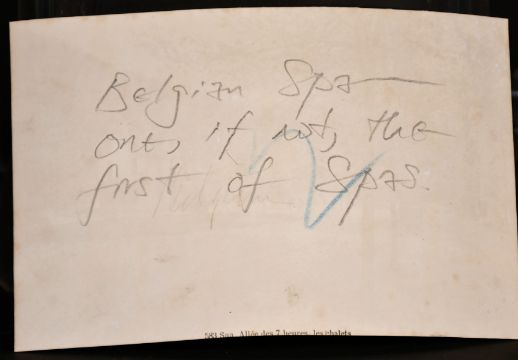 Belgian Spa—
one, if not, the
first of Spas.
Belgium
2
583 Spa. Allée des 7 heures, les chalets